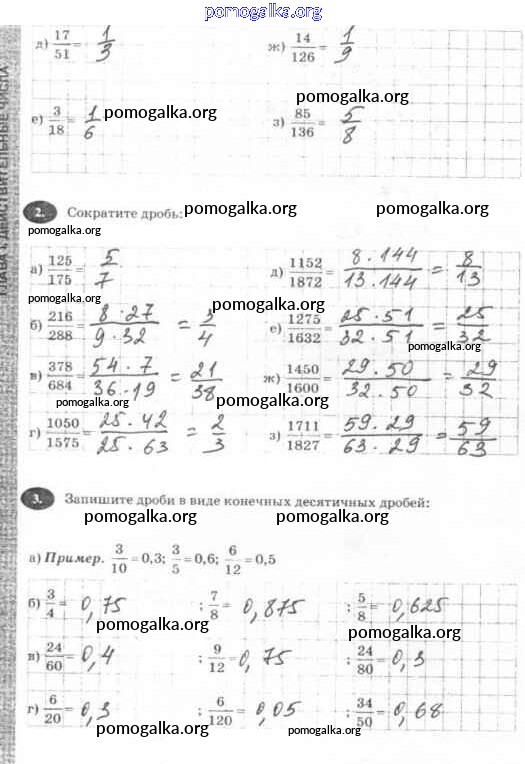 pomogalka.org
ГЛАВА I. ДЕЙСТВИТЕЛЬНЫЕ ЧИСЛА
д) 17/51 = 1/3 ж) 14/126 = 1/9
pomogalka.org
е) 3/18 = 1/6 pomogalka.org з) 85/136 = 5/8 pomogalka.org
2. Сократите дробь: pomogalka.org pomogalka.org
pomogalka.org
а) 125/175 = 5/7 д) 1152/1872 = 8·144/13·144 = 8/13
pomogalka.org pomogalka.org
б) 216/288 = 8·27/9·32 = 3/4 е) 1275/1632 = 25·51/32·51 = 25/32
pomogalka.org
в) 378/684 = 54·7/36·19 = 21/38 ж) 1450/1600 = 29·50/32·50 = 29/32
pomogalka.org pomogalka.org
г) 1050/1575 = 25·42/25·63 = 2/3 з) 1711/1827 = 59·29/63·29 = 59/63
3. Запишите дроби в виде конечных десятичных дробей:
pomogalka.org pomogalka.org
а) Пример. 3/10 = 0,3; 3/5 = 0,6; 6/12 = 0,5
б) 3/4 = 0,75 ; 7/8 = 0,875 ; 5/8 = 0,625
pomogalka.org pomogalka.org
в) 24/60 = 0,4 ; 9/12 = 0,75 ; 24/80 = 0,3
г) 6/20 = 0,3 ; 6/120 = 0,05 ; 34/50 = 0,68
pomogalka.org pomogalka.org